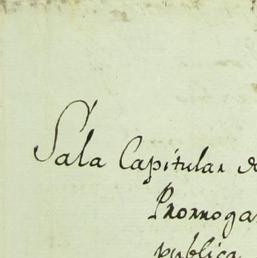 Sala Capitular d
Prorroga
publica